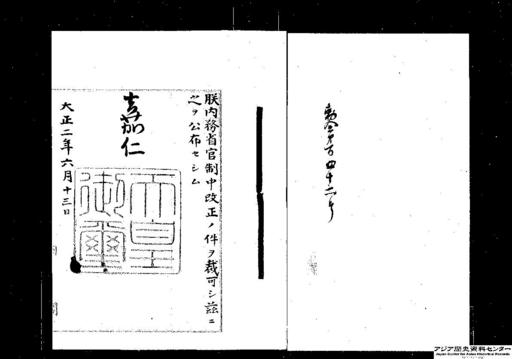 勅令第百四十二号
朕内務省官制中改正ノ件ヲ裁可シ茲ニ
之ヲ公布セシム
嘉仁
天皇御璽
大正二年六月十三日
アジア歴史資料センター
Japan Center for Asian Historical Records